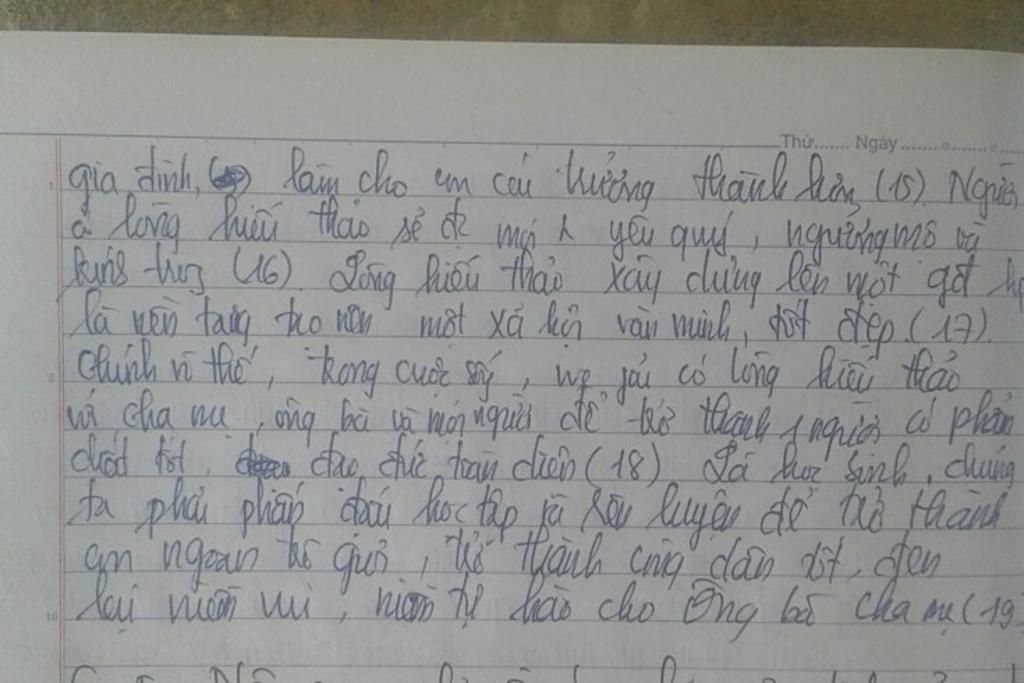 Thứ....... Ngày ....... ....... ...
gia đình, làm cho em cái trưởng thành hơn (15). Người
có lòng hiếu thảo sẽ đc mọi yêu quý, ngưỡng mộ và
kính trọg (16). Lòng hiếu thảo xây dựng lên một gđ
là nền tảng tạo nên một xã hội văn minh, tốt đẹp. (17).
Chính vì thế, trong cuộc sống, có lòng hiếu thảo
với cha mẹ, ông bà và mọi người để trở thành 1 người có phẩm
chất tốt, đạo đức toàn diện (18) Là học sinh, chúng
ta phải phấn đấu học tập và rèn luyện để trở thành
con ngoan trò giỏi, trở thành công dân tốt, đem
lại niềm vui, niềm tự hào cho ông bà cha mẹ (19)